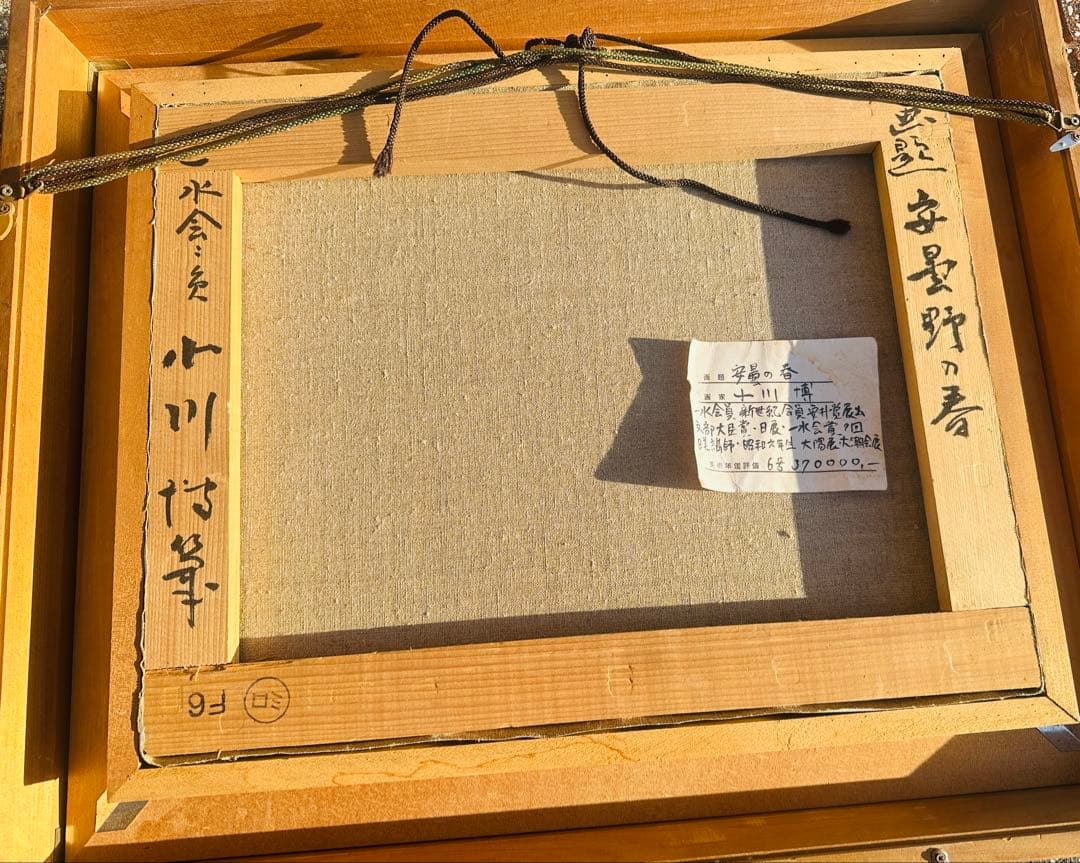 画題 安曇野の春
一水会々員 小川博筆
画題 安曇の春
画家 小川 博
一水会員 新世紀会員 安井賞展出
文部大臣賞・日展・一水会賞
講師・昭和六年生
美術年鑑評価 6号 370000,-
F6